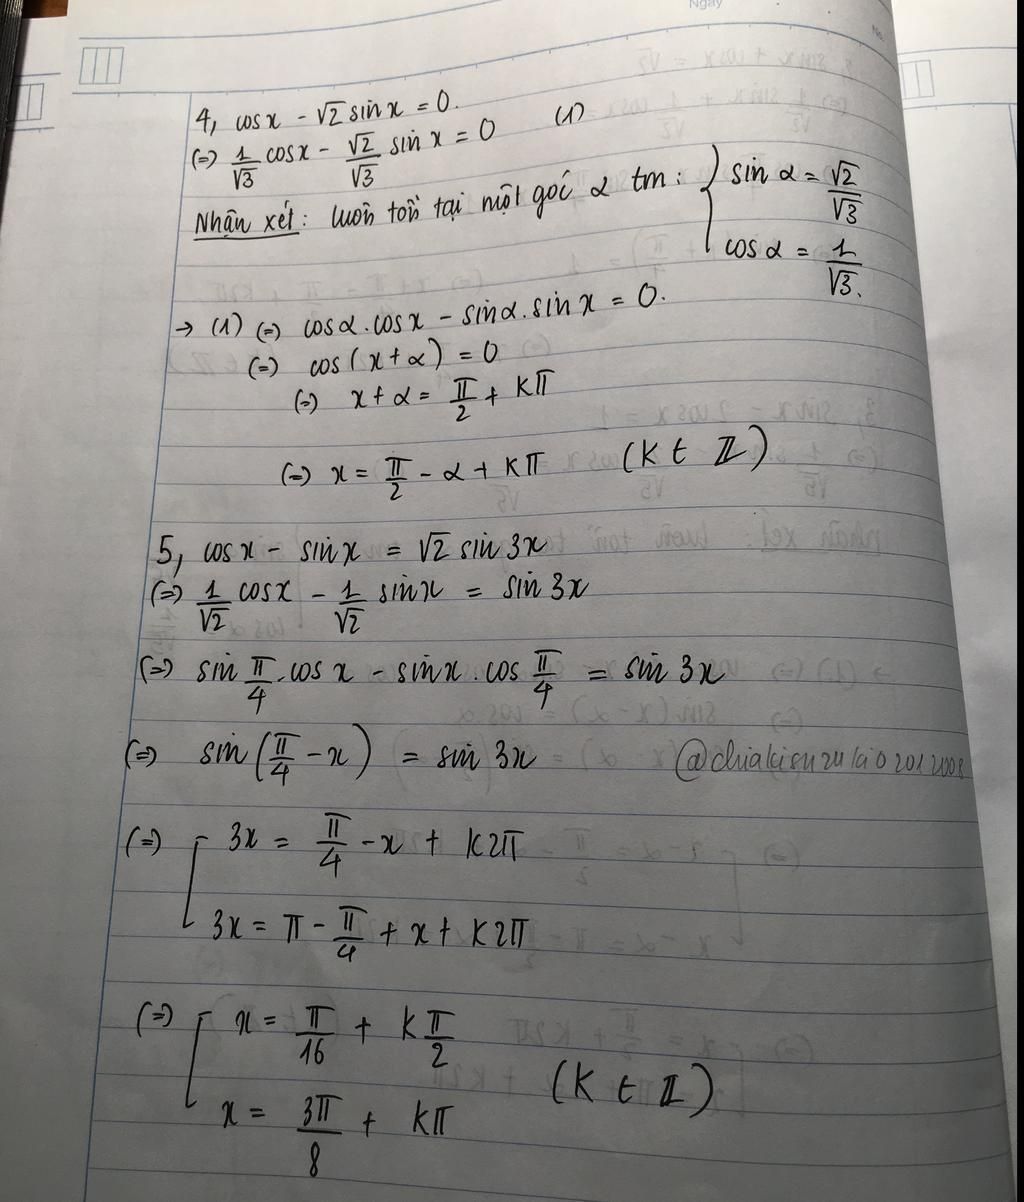 Ngày
No.
4, cosx - √2 sinx = 0.
(=) 1/√3 cosx - √2/√3 sin x = 0 (1)
Nhận xét: luôn tồn tại một góc α tm: { sin α = √2/√3
cos α = 1/√3.
→ (1) (=) cosα.cosx - sinα.sinx = 0.
(=) cos(x+α) = 0
(=) x+α = π/2 + kπ
(=) x = π/2 - α + kπ (k ∈ Z)
5, cosx - sinx = √2 sin 3x
(=) 1/√2 cosx - 1/√2 sinx = sin 3x
(=) sin π/4 . cos x - sinx . cos π/4 = sin 3x
(=) sin(π/4 - x) = sin 3x
(=) [ 3x = π/4 - x + k2π
3x = π - π/4 + x + k2π
(=) [ x = π/16 + k π/2
x = 3π/8 + kπ (k ∈ Z)